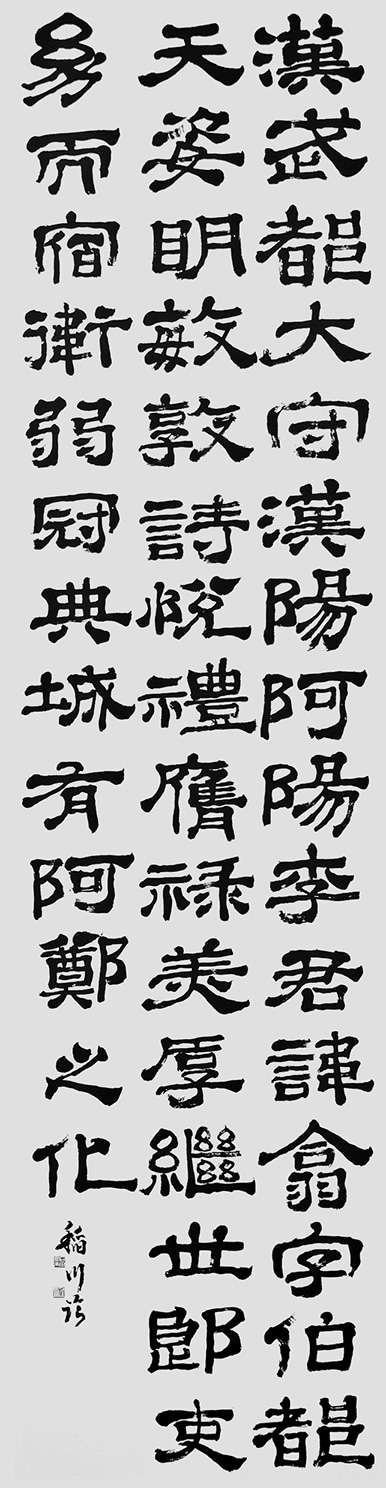 漢武都大守漢陽阿陽李君諱翕字伯都
天姿明敏敦詩悅禮膺祿美厚繼世郎吏
幼而宿衛弱冠典城有阿鄭之化
稲川臨